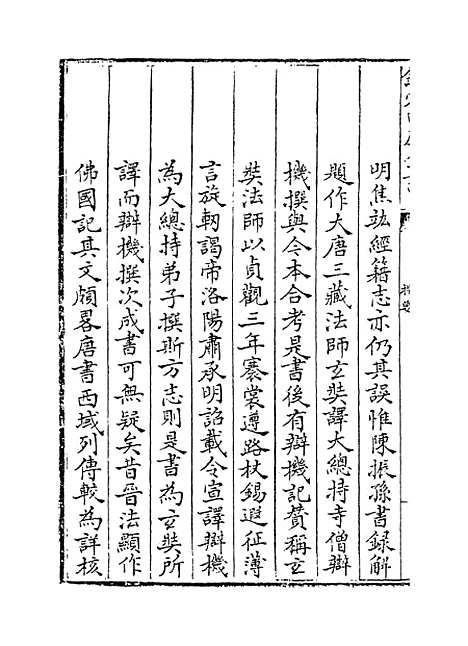 明焦竑經籍志亦仍其誤惟陳振孫書録解
題作大唐三藏法師玄奘譯大總持寺僧辯
機撰與今本合考是書後有辯機記賛稱玄
奘法師以貞觀三年褰裳遵路杖錫遐征薄
言旋軔謁帝洛陽肅承明詔載令宣譯辯機
為大總持弟子撰斯方志則是書為玄奘所
譯而辯機撰次成書可無疑矣昔晉法顯作
佛國記其文頗畧唐書西域列傳較為詳核